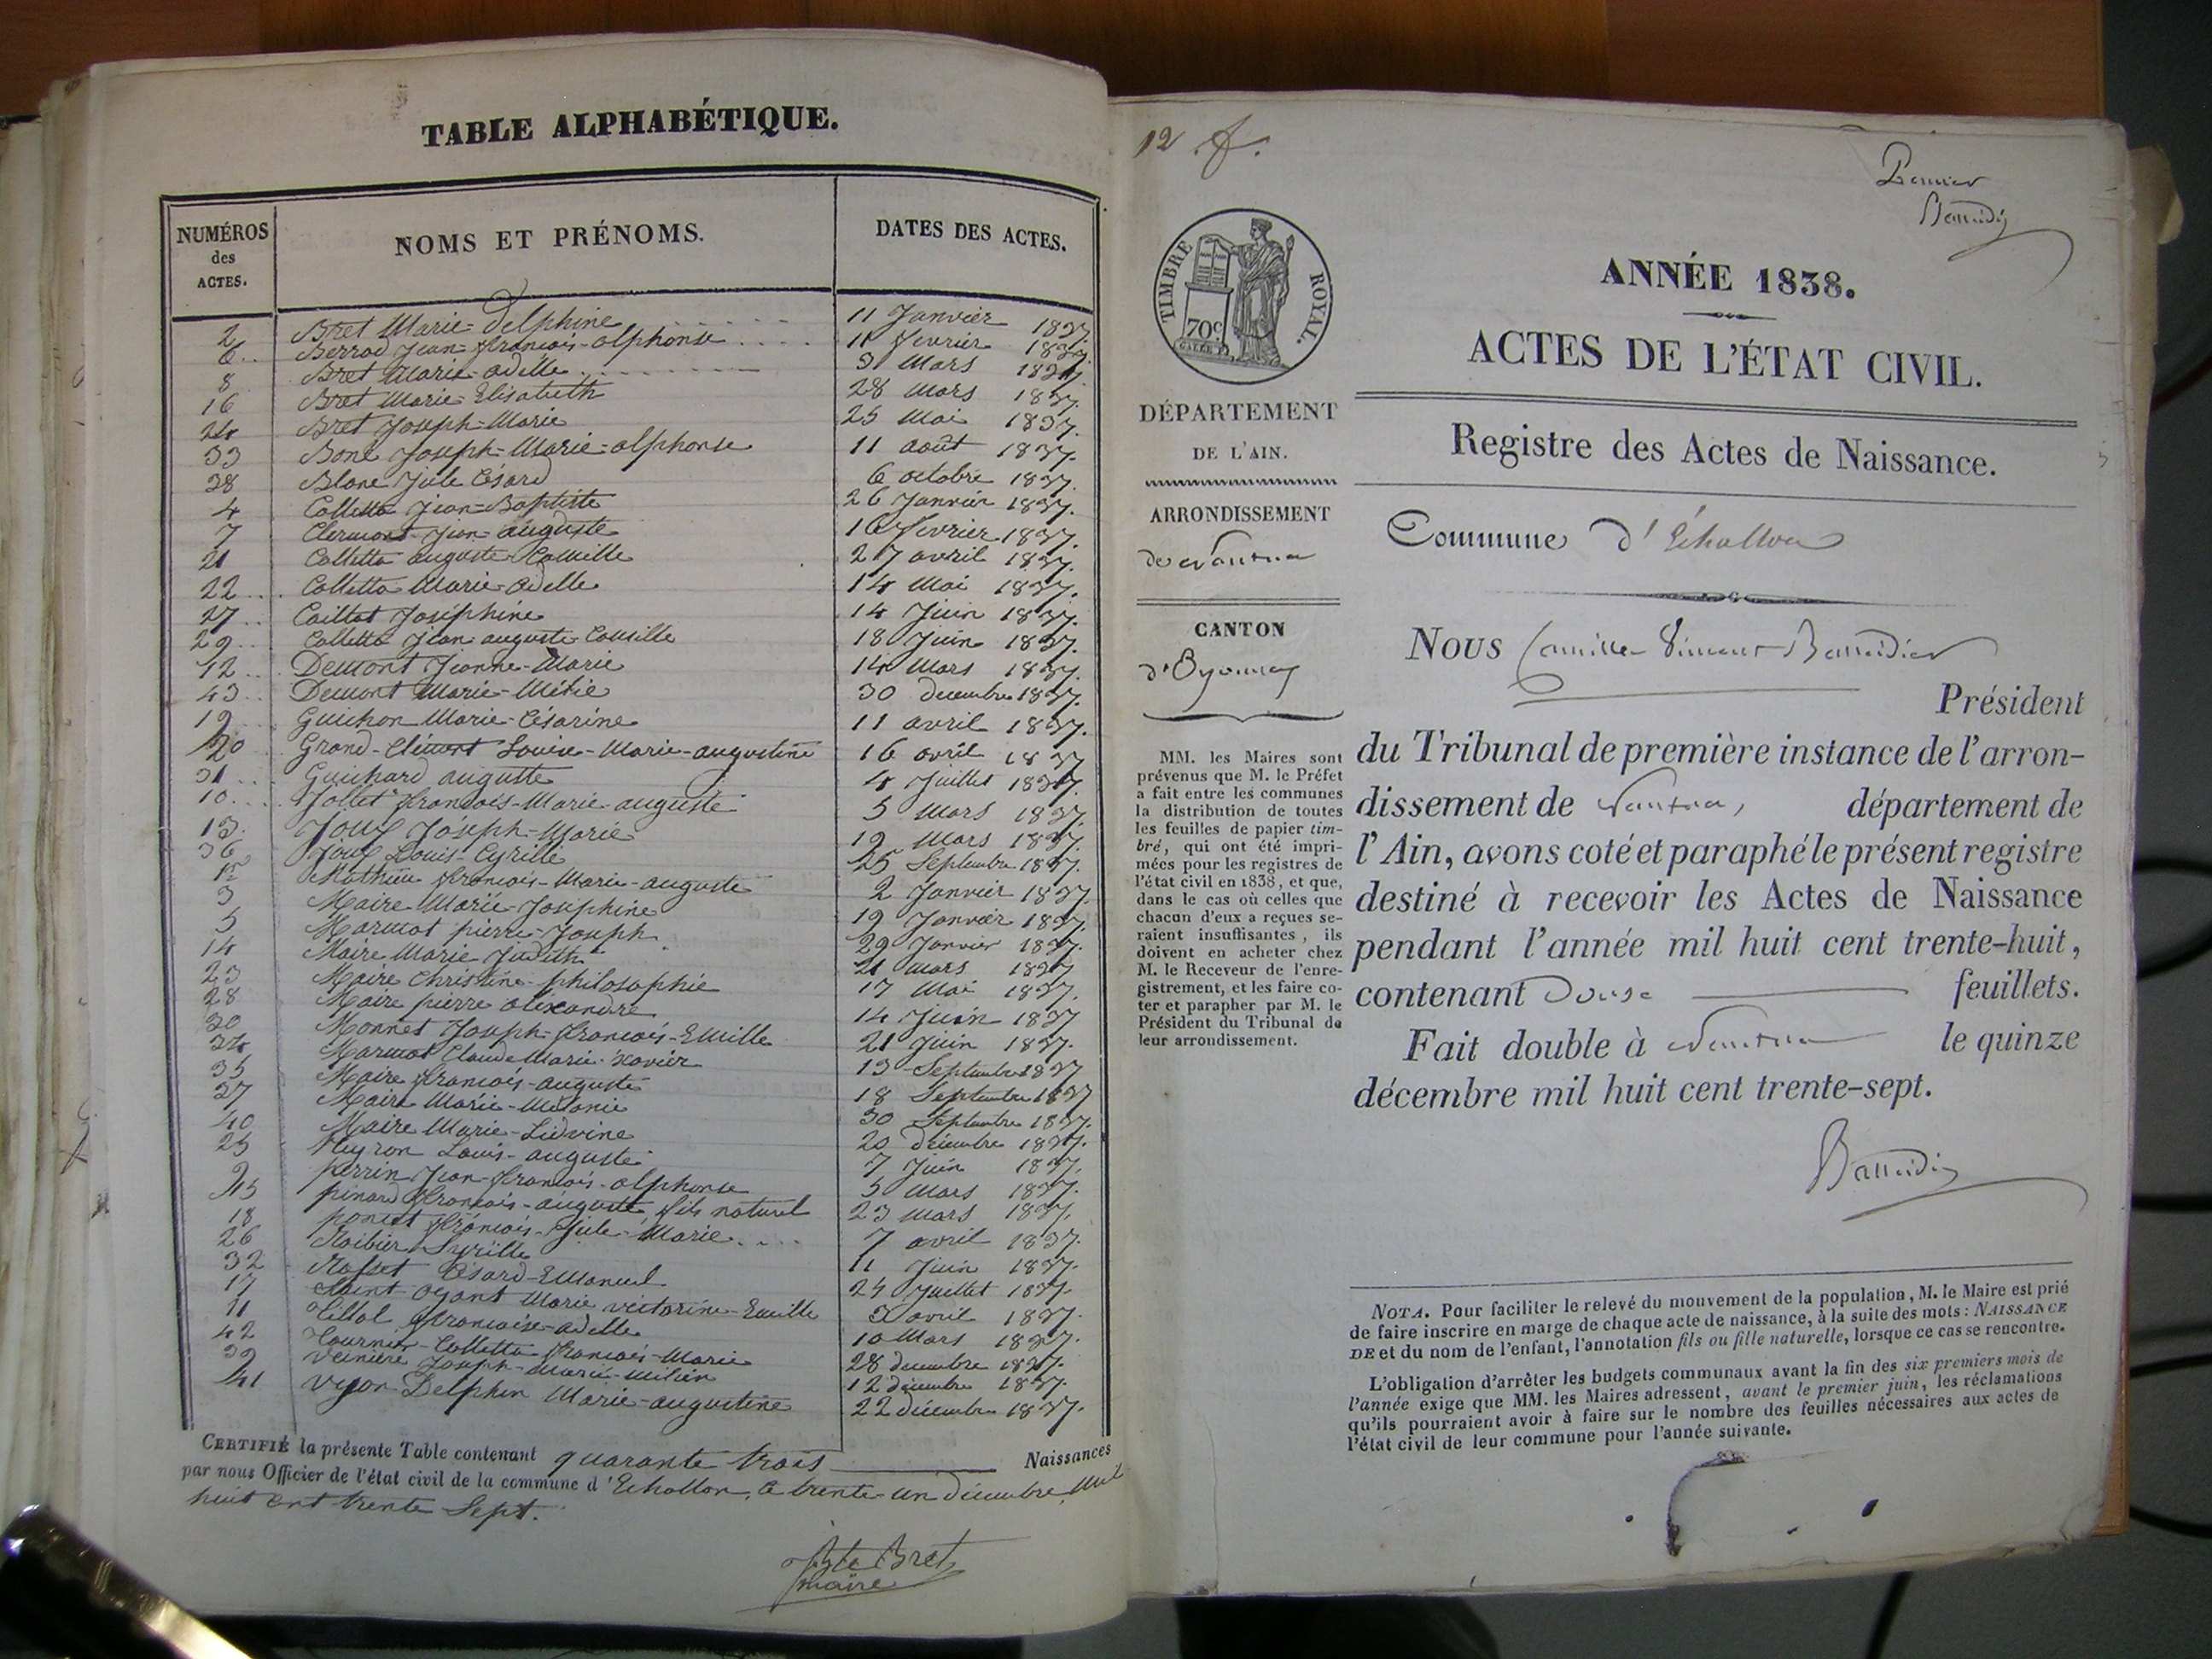 TABLE ALPHABÉTIQUE.
NUMÉROS des ACTES. NOMS ET PRÉNOMS. DATES DES ACTES.
2 Bret Marie-Delphine 11 Janvier 1837.
6 Berrod Jean-François-alphonse 11 fevrier 1837.
8 Bret Marie-adélle 3 Mars 1837.
16 Bret Marie-Elisabeth 28 Mars 1837.
24 Bret Joseph-Marie 25 Mai 1837.
33 Bone Joseph-Marie-alphonse 11 août 1837.
38 Blanc Jule Césard 6 octobre 1837.
4 Colletta Jean-Baptiste 26 Janvier 1837.
7 Clermont Jean auguste 16 fevrier 1837.
21 Colletta auguste Camille 27 avril 1837.
22 Colletta Marie-adelle 14 Mai 1837.
27 Caillat Joséphine 14 Juin 1837.
29 Colletta Jean auguste Camille 18 Juin 1837.
12 Demont Jeanne-Marie 14 Mars 1837.
43 Demont Marie-Mélie 30 decembre 1837.
19 Guichon Marie-Césarine 11 avril 1837.
20 Grand-Clément Louise-Marie-augustine 16 avril 1837
31 Guichard auguste 4 Juillet 1837.
10 Jollet François-Marie-auguste 5 Mars 1837.
13 Joux Joseph-Marie 19 Mars 1837.
36 Joux Louis-Cyrille 25 Septembre 1837.
1er Mathieu françois-Marie-auguste 2 Janvier 1837.
3 Maire Marie-Joséphine 19 Janvier 1837.
5 Marmot pierre-Joseph 29 Janvier 1837.
14 Maire Marie Judith 21 Mars 1837
23 Maire Christine-philosophie 17 Mai 1837.
28 Maire pierre alexandre 14 Juin 1837
30 Monnet Joseph-françois-Emille 21 Juin 1837.
34 Marmot Claude Marie-xavier 13 Septembre 1837
35 Maire françois-auguste 18 Septembre 1837
37 Maire Marie-Mélanie 30 Septembre 1837.
40 Maire Marie-Lidvine 20 décembre 1837.
25 Neyron Louis-auguste 7 Juin 1837.
9 perrin Jean-françois-alphonse 5 Mars 1837.
15 pinard françois-auguste, fils naturel 23 Mars 1837.
18 poncet françois-Jule-Marie 7 avril 1837.
26 Roibier Syrille 11 Juin 1837.
32 Rosset Césard-Emanuel 24 Juillet 1837.
17 Saint-oyant Marie victorine-Emille 3 avril 1837.
11 Tillol françoise-adelle 10 Mars 1837.
42 Tournier-Colletta françois-Marie 28 decembre 1837.
39 Joseph-Marie-milien 12 décembre 1837.
41 vyon Delphin Marie-augustine 22 décembre 1837.
CERTIFIÉ la présente Table contenant quarante trois Naissances
par nous Officier de l'état civil de la commune d'Echallon, le trente-un décembre mil
huit cent trente Sept.
Bte Bret
maire
12 f.
Premier
TIMBRE ROYAL.
70c
ANNÉE 1838.
ACTES DE L'ÉTAT CIVIL.
Registre des Actes de Naissance.
Commune d'Échallon
DÉPARTEMENT
DE L'AIN.
ARRONDISSEMENT
de Nantua
CANTON
d'Oyonnax
MM. les Maires sont
prévenus que M. le Préfet
a fait entre les communes
la distribution de toutes
les feuilles de papier tim-
bré, qui ont été impri-
mées pour les registres de
l'état civil en 1838, et que,
dans le cas où celles que
chacun d'eux a reçues se-
raient insuffisantes, ils
doivent en acheter chez
M. le Receveur de l'enre-
gistrement, et les faire co-
ter et parapher par M. le
Président du Tribunal de
leur arrondissement.
Nous Camille Vincent
Président
du Tribunal de première instance de l'arron-
dissement de Nantua, département de
l'Ain, avons coté et paraphé le présent registre
destiné à recevoir les Actes de Naissance
pendant l'année mil huit cent trente-huit,
contenant Douze feuillets.
Fait double à Nantua le quinze
décembre mil huit cent trente-sept.
NOTA. Pour faciliter le relevé du mouvement de la population, M. le Maire est prié
de faire inscrire en marge de chaque acte de naissance, à la suite des mots: NAISSANCE
DE et du nom de l'enfant, l'annotation fils ou fille naturelle, lorsque ce cas se rencontre.
L'obligation d'arrêter les budgets communaux avant la fin des six premiers mois de
l'année exige que MM. les Maires adressent, avant le premier juin, les réclamations
qu'ils pourraient avoir à faire sur le nombre des feuilles nécessaires aux actes de
l'état civil de leur commune pour l'année suivante.